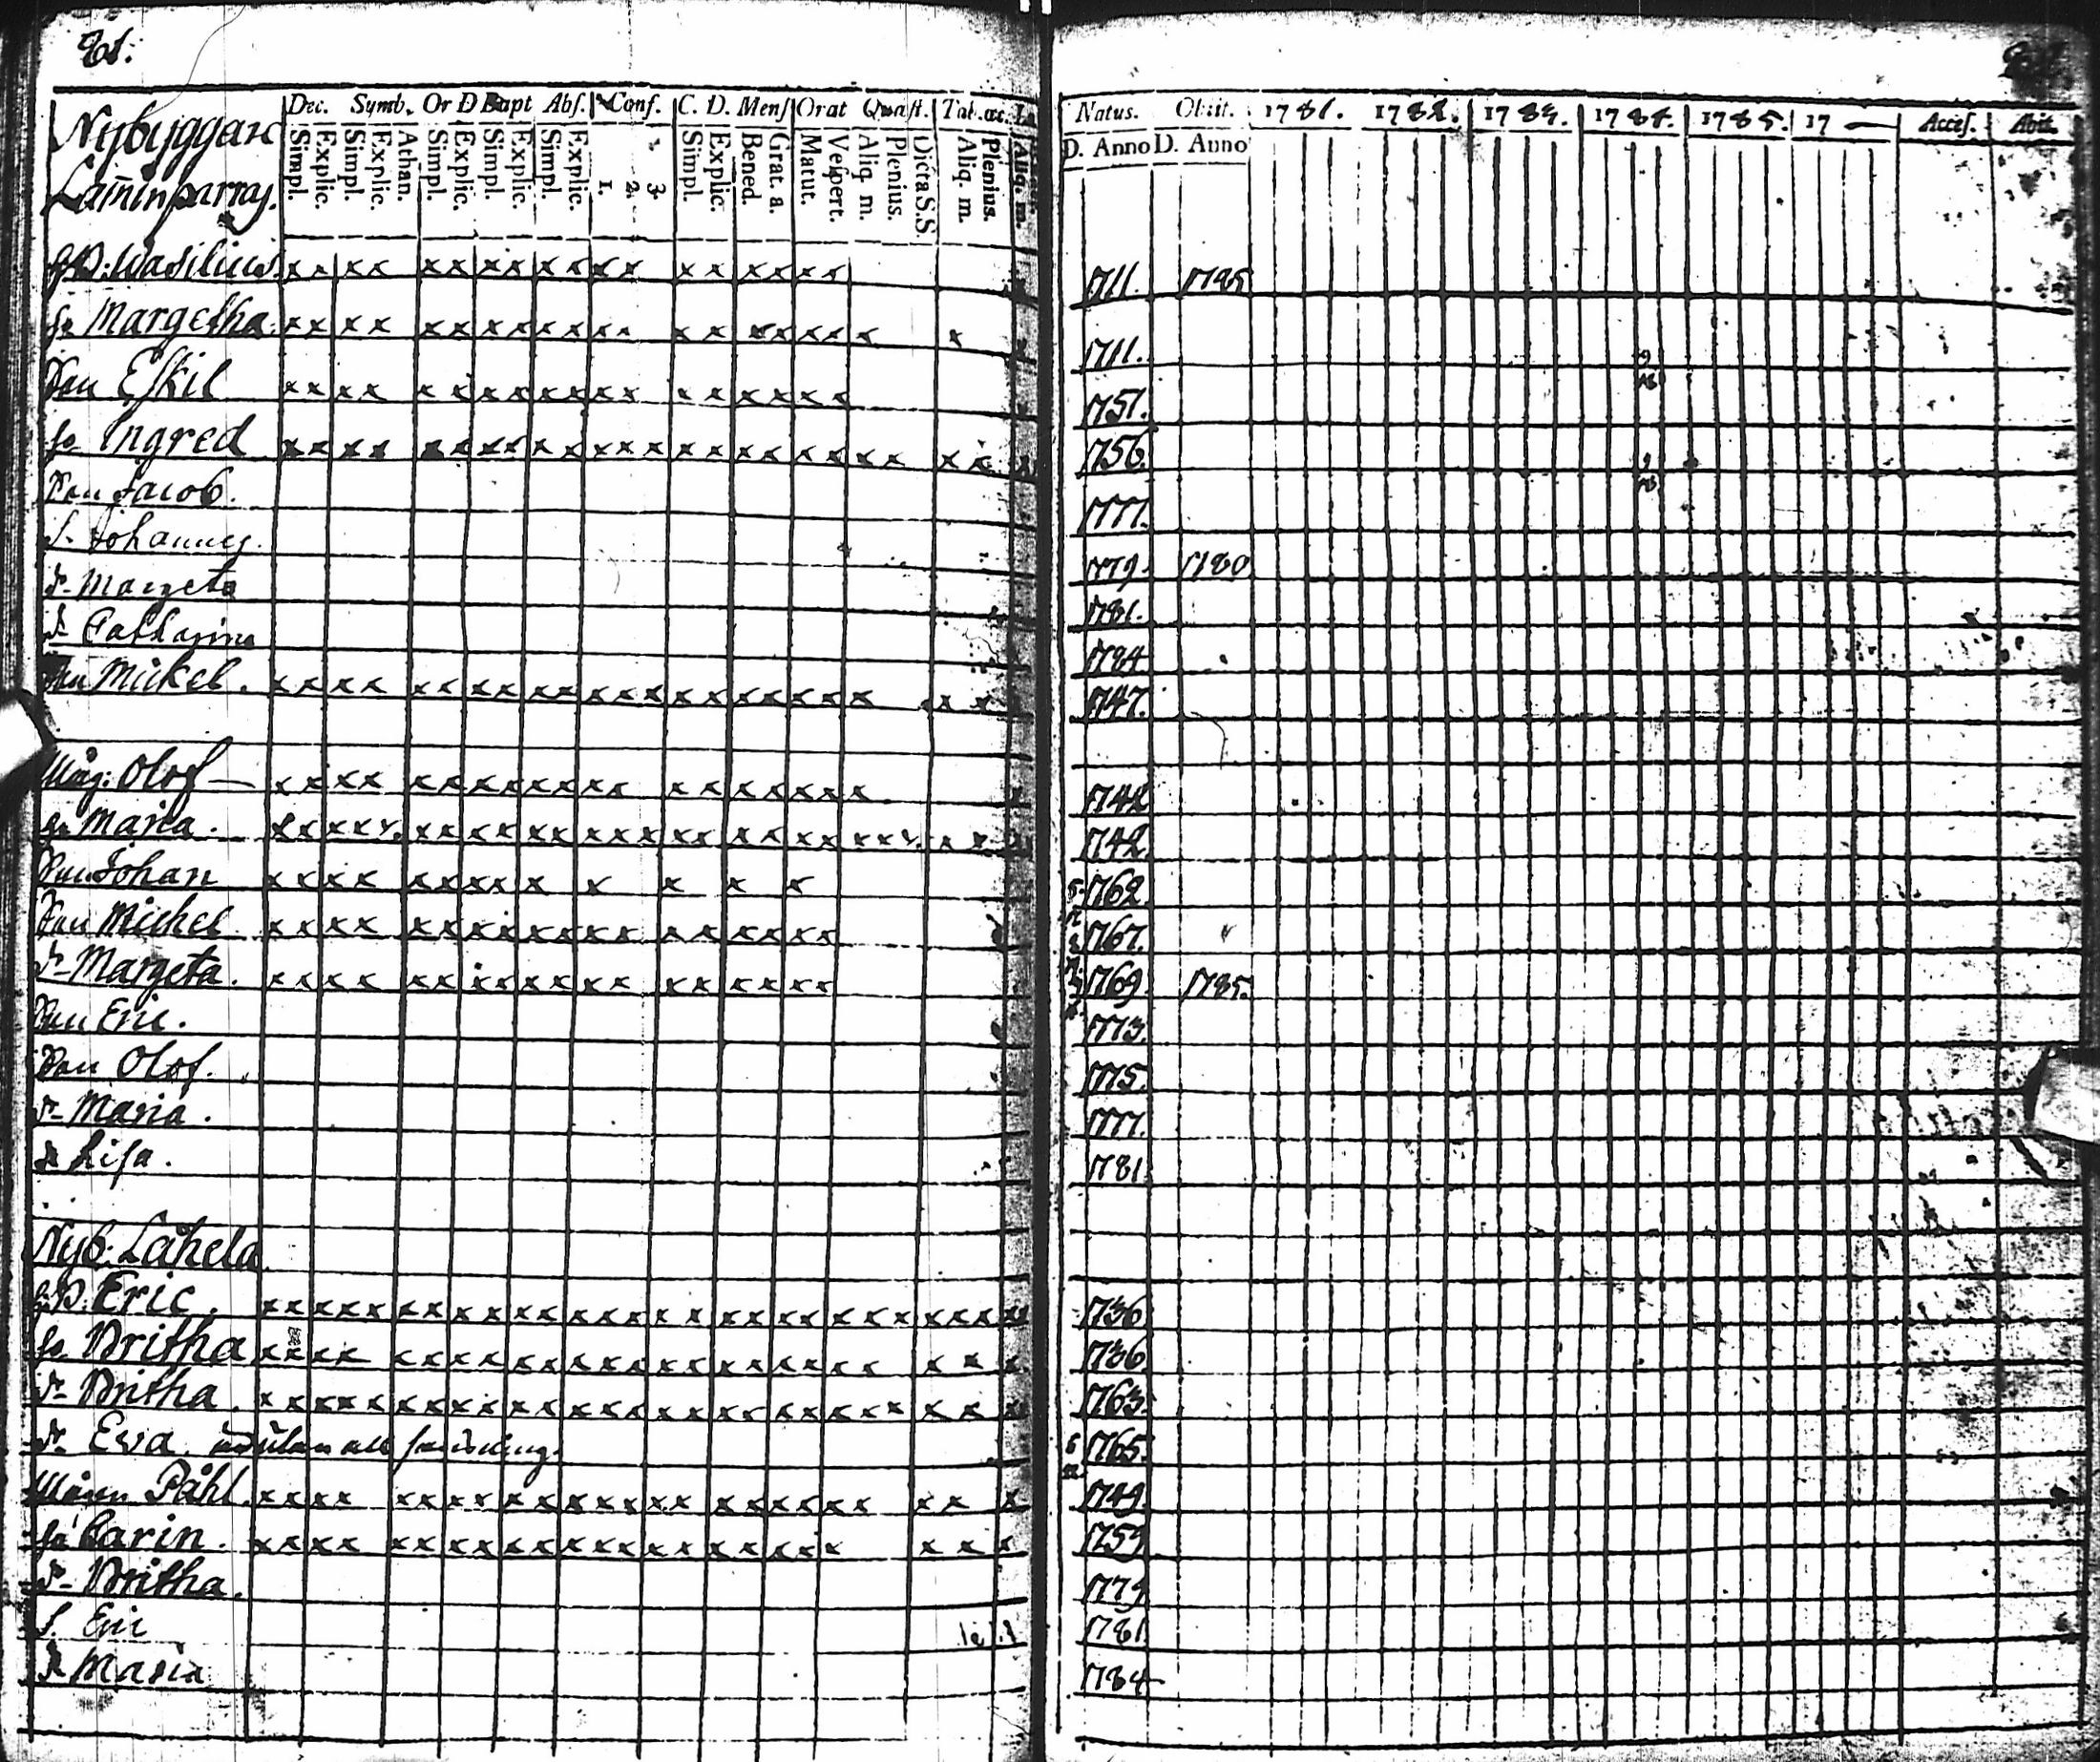 81.
Dec. Symb. Or D Bapt Abs. Conf. C. D. Mens Orat Quæst. Tab. œc.
Simpl. Explic. Simpl. Explic. Athan. Simpl. Explic. Simpl. Explic. Simpl. Explic. 1. 2. 3. Simpl. Explic. Bened. Grat. a. Matut. Vespert. Aliq. m. Plenius. Dicta S.S. Aliq. m. Plenius. Aliq. m.
Nybyggare
Natus. Obiit. 1781. 1782. 1783. 1784. 1785. 17 — Acces. Abit.
D. Anno D. Anno
Wasilius. x x x x x x x x x x x x x x x x x x 1711. 1785
Margetha x x x x x x x x x x x x x x x x x x x x 1711.
Eskil x x x x x x x x x x x x x x x x x x 1751.
Ingred x x x x x x x x x x x x x x x x x x x x x x x x 1756.
Jacob. 1777.
S. Johannes. 1779. 1780
Margeta 1781.
Catharina 1784
Mickel. x x x x x x x x x x x x x x x x x x x x x x 1747.
Måg: Olof — x x x x x x x x x x x x x x x x x x x 1742
Maria. x x x x x x x x x x x x x x x x x x x x x x x x x 1742.
Johan x x x x x x x x x x x x x 1762.
Michel x x x x x x x x x x x x x x x x x x 1767.
Margeta. x x x x x x x x x x x x x x x x x x 1769. 1785.
Eric. 1773.
Olof. 1775.
Maria. 1777.
Lisa. 1781
Nyb: Låhela
Eric. x x x x x x x x x x x x x x x x x x x x x x x x x x x 1736
Britha x x x x x x x x x x x x x x x x x x x x x x x x 1736.
Britha. x x x x x x x x x x x x x x x x x x x x x x x x x x 1763.
Eva. utan all 1765.
Påhl. x x x x x x x x x x x x x x x x x x x x x x x 1749.
Carin. x x x x x x x x x x x x x x x x x x x x x x x 1759
Britha. 1779
S. Eric 1781
Maria 1784